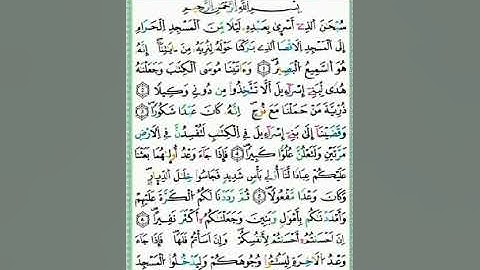 بِسْمِ اللَّهِ الرَّحْمَٰنِ الرَّحِيمِ
سُبْحَٰنَ الَّذِي أَسْرَىٰ بِعَبْدِهِ لَيْلًا مِّنَ الْمَسْجِدِ الْحَرَامِ
إِلَى الْمَسْجِدِ الْأَقْصَا الَّذِي بَٰرَكْنَا حَوْلَهُ لِنُرِيَهُ مِنْ ءَايَٰتِنَا إِنَّهُ
هُوَ السَّمِيعُ الْبَصِيرُ ١ وَءَاتَيْنَا مُوسَى الْكِتَٰبَ وَجَعَلْنَٰهُ
هُدًى لِّبَنِي إِسْرَآءِيلَ أَلَّا تَتَّخِذُوا مِن دُونِي وَكِيلًا ٢
ذُرِّيَّةَ مَنْ حَمَلْنَا مَعَ نُوحٍ إِنَّهُ كَانَ عَبْدًا شَكُورًا ٣
وَقَضَيْنَا إِلَىٰ بَنِي إِسْرَآءِيلَ فِي الْكِتَٰبِ لَتُفْسِدُنَّ فِي الْأَرْضِ
مَرَّتَيْنِ وَلَتَعْلُنَّ عُلُوًّا كَبِيرًا ٤ فَإِذَا جَآءَ وَعْدُ أُولَىٰهُمَا بَعَثْنَا
عَلَيْكُمْ عِبَادًا لَّنَا أُولِي بَأْسٍ شَدِيدٍ فَجَاسُوا خِلَٰلَ الدِّيَارِ
وَكَانَ وَعْدًا مَّفْعُولًا ٥ ثُمَّ رَدَدْنَا لَكُمُ الْكَرَّةَ عَلَيْهِمْ
وَأَمْدَدْنَٰكُم بِأَمْوَٰلٍ وَبَنِينَ وَجَعَلْنَٰكُمْ أَكْثَرَ نَفِيرًا ٦
إِنْ أَحْسَنتُمْ أَحْسَنتُمْ لِأَنفُسِكُمْ وَإِنْ أَسَأْتُمْ فَلَهَا فَإِذَا جَآءَ
وَعْدُ الْآخِرَةِ لِيَسُـُٔوا وُجُوهَكُمْ وَلِيَدْخُلُوا الْمَسْجِدَ